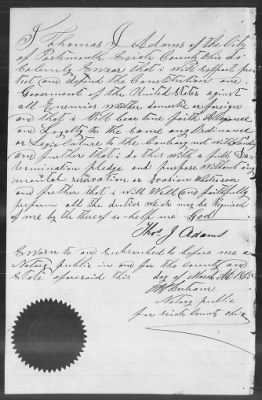 I Thomas J Adams of the City
of Portsmouth Scioto County Ohio do
Solemnly Swear that i will support pro
tect and defend the Constitution and
Government of the United States against
all Enemies whether domestic or foreign
and that i will bear true faith Allegiance
and Loyalty to the Same any Ordinance
or Legislature to the Contrary not withstanding
and further that i do this with a full De-
termination pledge and purpose without any
mental reservation or Evasion Whatsoever
and further that i will Well and faithfully
perform all the duties wh may be required
of me by the thereof so help me God
Thos J Adams
Sworn to and Subscribed before me a
Notary public in and for the County and
State aforesaid this day of March AD 1865
Bertram
Notary public
for Scioto County Ohio